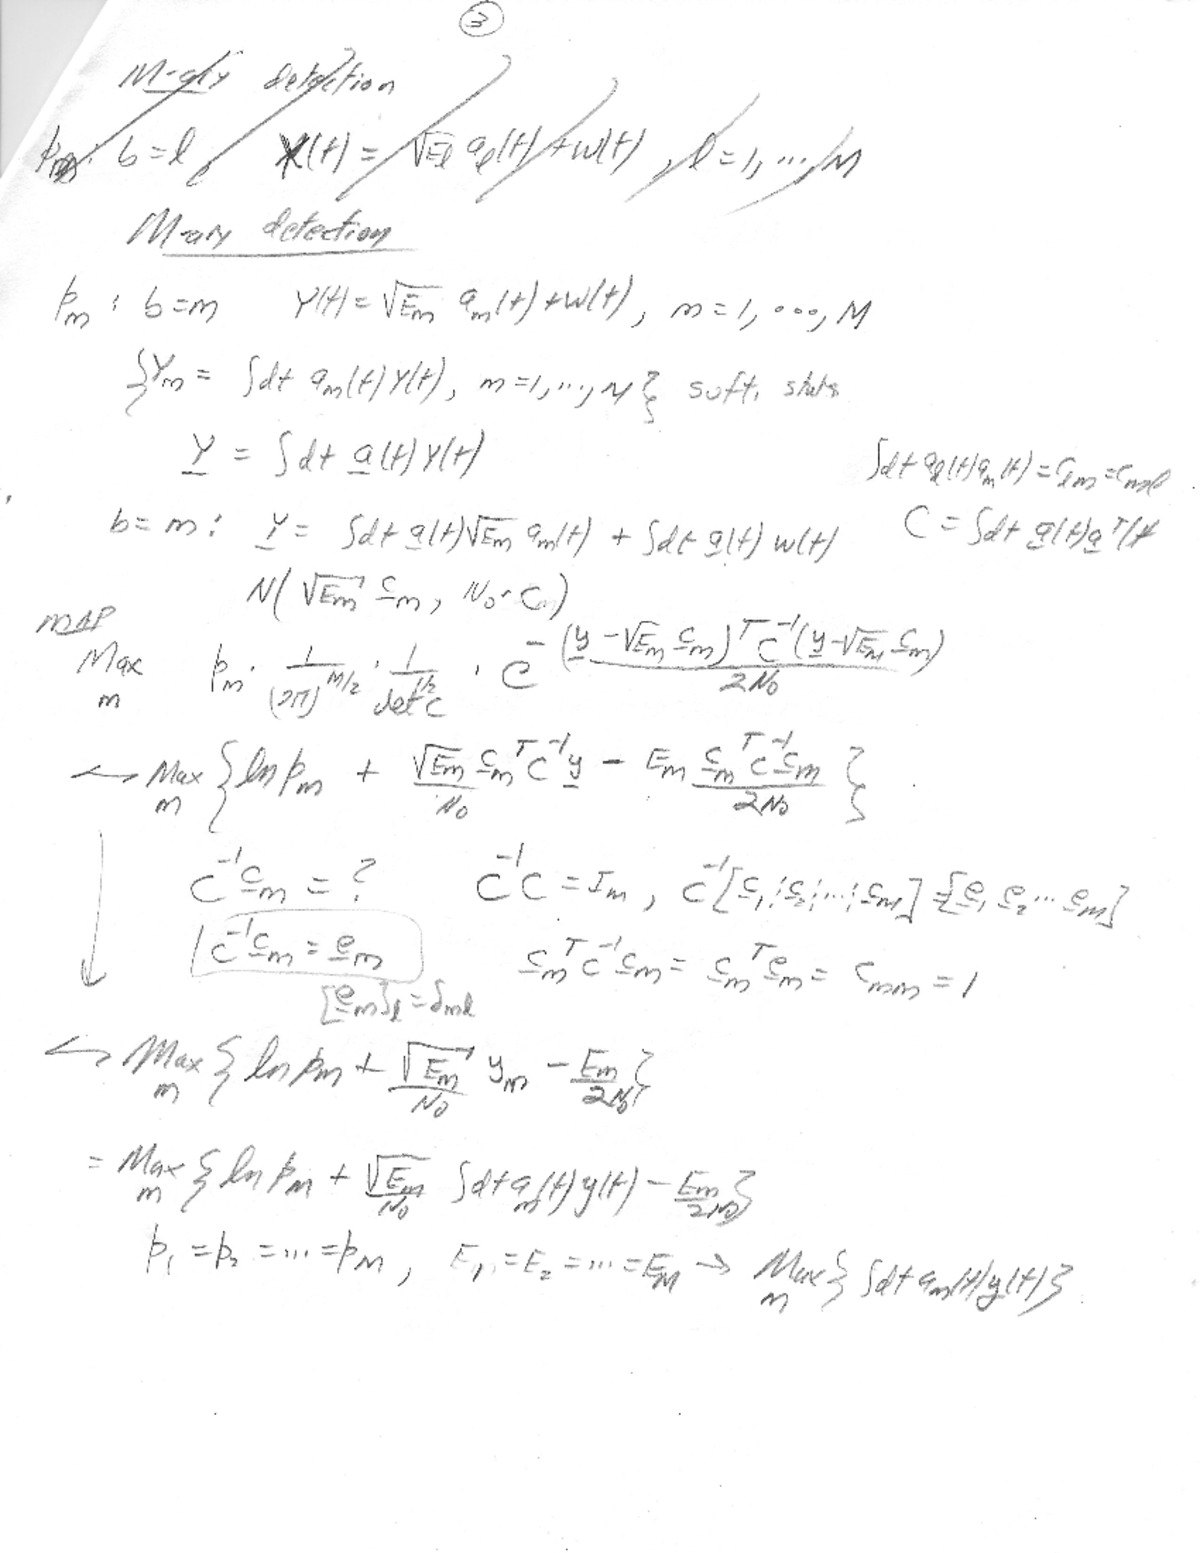 3
M-ary detection
p_m: b=l, X(t) = √E_l a_l(t) + w(t), l=1, ..., M
M-ary detection
p_m: b=m Y(t) = √E_m a_m(t) + w(t), m=1, ..., M
{Y_m = ∫dt a_m(t) Y(t), m=1, ..., M} soft. stats
Y = ∫dt a(t) Y(t)
∫dt a_l(t) a_m(t) = c_lm = c_ml
b=m: Y = ∫dt a(t) √E_m a_m(t) + ∫dt a(t) w(t)
C = ∫dt a(t) a^T(t
N(√E_m c_m, N_0·C)
MAP
Max_m p_m · 1/(2π)^{M/2} · 1/det^{1/2}C · e^{-(y-√E_m c_m)^T C^{-1} (y-√E_m c_m)/2N_0}
↔ Max_m {ln p_m + √E_m c_m^T C^{-1} y / N_0 - E_m c_m^T C^{-1} c_m / 2N_0}
C^{-1} c_m = ? C^{-1}C = I_m, C^{-1}[c_1 ¦ c_2 ¦ ... ¦ c_M] = [e_1 e_2 ... e_M]
C^{-1} c_m = e_m c_m^T C^{-1} c_m = c_m^T e_m = c_mm = 1
[e_m]_l = δ_ml
↔ Max_m {ln p_m + √E_m/N_0 y_m - E_m/2N_0}
= Max_m {ln p_m + √E_m/N_0 ∫dt a_m(t) y(t) - E_m/2N_0}
p_1 = p_2 = ... = p_M, E_1 = E_2 = ... = E_M → Max_m {∫dt a_m(t) y(t)}